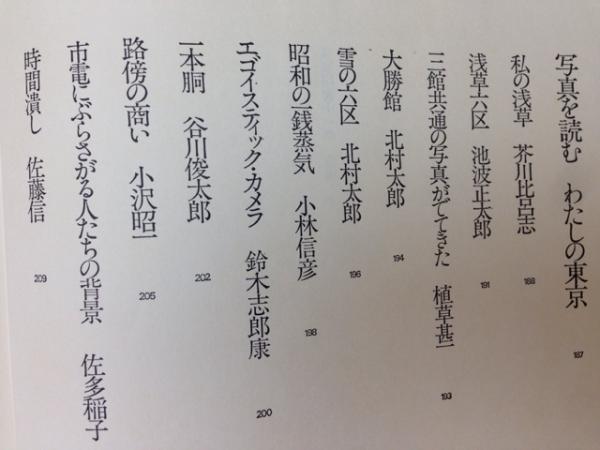 写真を読む わたしの東京 187
私の浅草 芥川比呂志 188
浅草六区 池波正太郎 191
三館共通の写真がでてきた 植草甚一 193
大勝館 北村太郎 194
雪の六区 北村太郎 196
昭和の一銭蒸気 小林信彦 198
エゴイスティック・カメラ 鈴木志郎康 200
一本胴 谷川俊太郎 202
路傍の商い 小沢昭一 205
市電にぶらさがる人たちの背景 佐多稲子
時間潰し 佐藤信 209